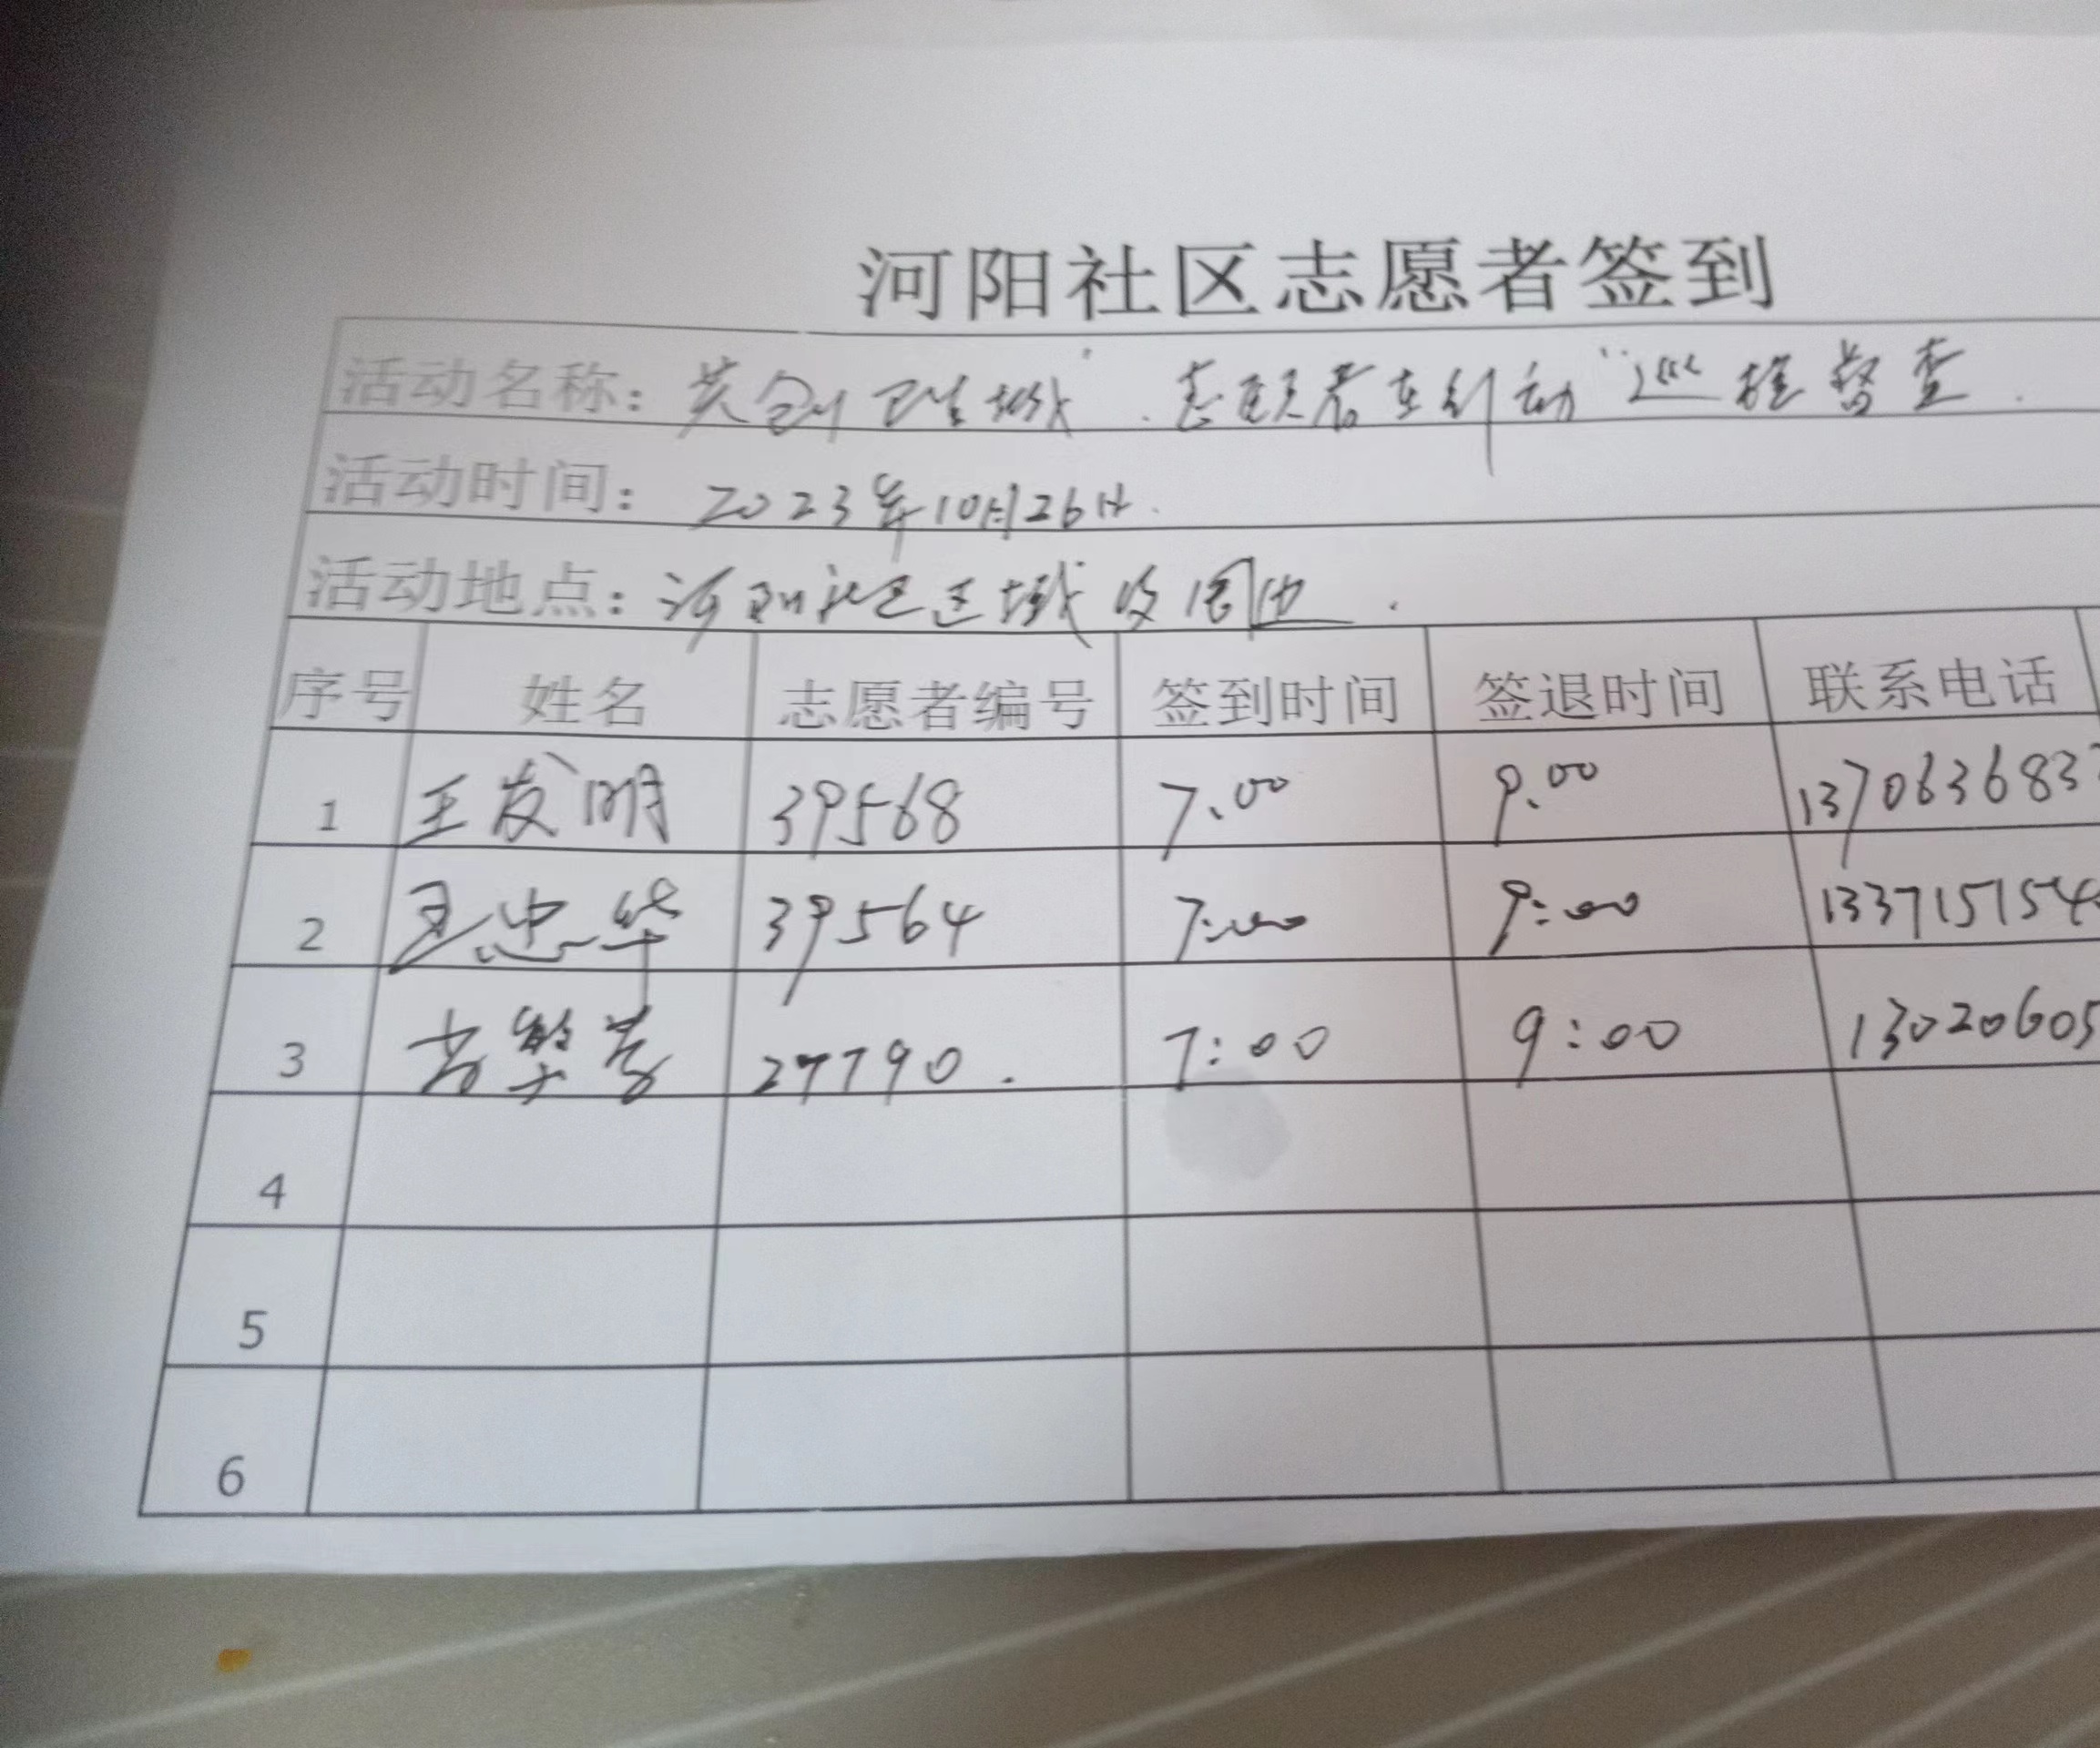 河阳社区志愿者签到
活动名称：共创文明城"．志愿者在行动"巡逻督查．
活动时间：2023年10月26日.
活动地点：河阳社区区域及周边．
序号 姓名 志愿者编号 签到时间 签退时间 联系电话
1 王发明 39568 7.00 9.00 1370636837
2 王忠华 39564 7:00 9:00 133715154
3 27790. 7:00 9:00 13020605
4
5
6